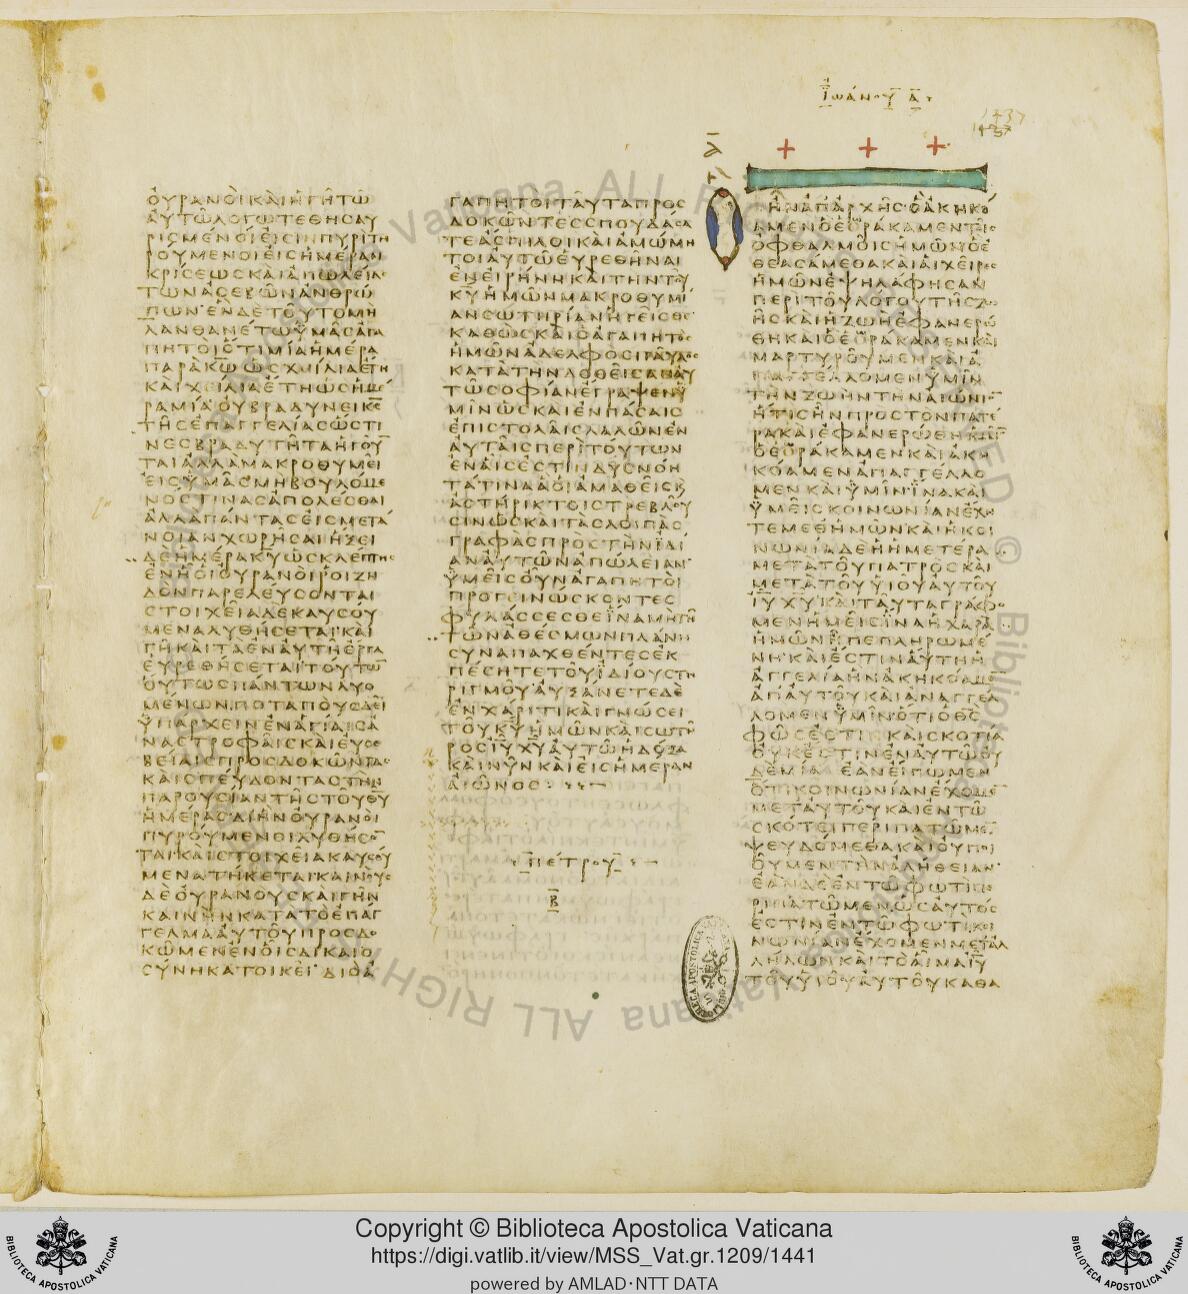 Ἰωάνου Α
1437
ΟΥΡΑΝΟΙΚΑΙΗΓΗΤΩ
ΑΥΤΩΛΟΓΩΤΕΘΗΣΑΥ
ΡΙΣΜΕΝΟΙΕΙΣΙΝΠΥΡΙΤΗ
ΡΟΥΜΕΝΟΙΕΙΣΗΜΕΡΑΝ
ΚΡΙΣΕΩΣΚΑΙΑΠΩΛΕΙΑΣ
ΤΩΝΑΣΕΒΩΝΑΝΘΡΩ
ΠΩΝΕΝΔΕΤΟΥΤΟΜΗ
ΛΑΝΘΑΝΕΤΩΥΜΑΣΑΓΑ
ΠΗΤΟΙΟΤΙΜΙΑΗΜΕΡΑ
ΠΑΡΑΚΩΩΣΧΕΙΛΙΑΕΤΗ
ΚΑΙΧΕΙΛΙΑΕΤΗΩΣΗΜΕ
ΡΑΜΙΑΟΥΒΡΑΔΥΝΕΙΚΣ
ΤΗΣΕΠΑΓΓΕΛΙΑΣΩΣΤΙ
ΝΕΣΒΡΑΔΥΤΗΤΑΗΓΟΥ
ΤΑΙΑΛΛΑΜΑΚΡΟΘΥΜΕΙ
ΕΙΣΥΜΑΣΜΗΒΟΥΛΟΜΕ
ΝΟΣΤΙΝΑΣΑΠΟΛΕΣΘΑΙ
ΑΛΛΑΠΑΝΤΑΣΕΙΣΜΕΤΑ
ΝΟΙΑΝΧΩΡΗΣΑΙΗΞΕΙ
ΔΕΗΜΕΡΑΚΥΩΣΚΛΕΠΤΗΣ
ΕΝΗΟΙΟΥΡΑΝΟΙΡΟΙΖΗ
ΔΟΝΠΑΡΕΛΕΥΣΟΝΤΑΙ
ΣΤΟΙΧΕΙΑΔΕΚΑΥΣΟΥ
ΜΕΝΑΛΥΘΗΣΕΤΑΙΚΑΙ
ΓΗΚΑΙΤΑΕΝΑΥΤΗΕΡΓΑ
ΕΥΡΕΘΗΣΕΤΑΙΤΟΥΤΩ
ΟΥΤΩΣΠΑΝΤΩΝΛΥΟ
ΜΕΝΩΝΠΟΤΑΠΟΥΣΔΕΙ
ΥΠΑΡΧΕΙΝΕΝΑΓΙΑΙΣΑ
ΝΑΣΤΡΟΦΑΙΣΚΑΙΕΥΣΕ
ΒΕΙΑΙΣΠΡΟΣΔΟΚΩΝΤΑΣ
ΚΑΙΣΠΕΥΔΟΝΤΑΣΤΗΝ
ΠΑΡΟΥΣΙΑΝΤΗΣΤΟΥΘΥ
ΗΜΕΡΑΣΔΙΗΝΟΥΡΑΝΟΙ
ΠΥΡΟΥΜΕΝΟΙΛΥΘΗΣΟ
ΤΑΙΚΑΙΣΤΟΙΧΕΙΑΚΑΥΣΟΥ
ΜΕΝΑΤΗΚΕΤΑΙΚΑΙΝΟΥΣ
ΔΕΟΥΡΑΝΟΥΣΚΑΙΓΗΝ
ΚΑΙΝΗΝΚΑΤΑΤΟΕΠΑΓ
ΓΕΛΜΑΑΥΤΟΥΠΡΟΣΔΟ
ΚΩΜΕΝΕΝΟΙΣΔΙΚΑΙΟ
ΣΥΝΗΚΑΤΟΙΚΕΙΔΙΟΑ
ΓΑΠΗΤΟΙΤΑΥΤΑΠΡΟΣ
ΔΟΚΩΝΤΕΣΣΠΟΥΔΑΣΑ
ΤΕΑΣΠΙΛΟΙΚΑΙΑΜΩΜΗ
ΤΟΙΑΥΤΩΕΥΡΕΘΗΝΑΙ
ΕΝΕΙΡΗΝΗΚΑΙΤΗΝΤΟΥ
ΚΥΗΜΩΝΜΑΚΡΟΘΥΜΙ
ΑΝΣΩΤΗΡΙΑΝΗΓΕΙΣΘΕ
ΚΑΘΩΣΚΑΙΟΑΓΑΠΗΤΟΣ
ΗΜΩΝΑΔΕΛΦΟΣΠΑΥΛΟΣ
ΚΑΤΑΤΗΝΔΟΘΕΙΣΑΝΑΥ
ΤΩΣΟΦΙΑΝΕΓΡΑΨΕΝΥ
ΜΙΝΩΣΚΑΙΕΝΠΑΣΑΙΣ
ΕΠΙΣΤΟΛΑΙΣΛΑΛΩΝΕΝ
ΑΥΤΑΙΣΠΕΡΙΤΟΥΤΩΝ
ΕΝΑΙΣΕΣΤΙΝΔΥΣΝΟΗ
ΤΑΤΙΝΑΑΟΙΑΜΑΘΕΙΣΚ
ΑΣΤΗΡΙΚΤΟΙΣΤΡΕΒΛΟΥ
ΣΙΝΩΣΚΑΙΤΑΣΛΟΙΠΑΣ
ΓΡΑΦΑΣΠΡΟΣΤΗΝΙΔΙ
ΑΝΑΥΤΩΝΑΠΩΛΕΙΑΝ
ΥΜΕΙΣΟΥΝΑΓΑΠΗΤΟΙ
ΠΡΟΓΕΙΝΩΣΚΟΝΤΕΣ
ΦΥΛΑΣΣΕΣΘΕΙΝΑΜΗΤΗ
ΤΩΝΑΘΕΣΜΩΝΠΛΑΝΗ
ΣΥΝΑΠΑΧΘΕΝΤΕΣΕΚ
ΠΕΣΗΤΕΤΟΥΙΔΙΟΥΣΤΗ
ΡΙΓΜΟΥΑΥΞΑΝΕΤΕΔΕ
ΕΝΧΑΡΙΤΙΚΑΙΓΝΩΣΕΙ
ΤΟΥΚΥΗΜΩΝΚΑΙΣΩΤΗ
ΡΟΣΙΥΧΥΑΥΤΩΗΔΟΞΑ
ΚΑΙΝΥΝΚΑΙΕΙΣΗΜΕΡΑΝ
ΑΙΩΝΟΣ
ΠΕΤΡΟΥ
Β
ΗΝΑΠΑΡΧΗΣΟΑΚΗΚΟ
ΑΜΕΝΟΕΟΡΑΚΑΜΕΝΤΟΙΣ
ΟΦΘΑΛΜΟΙΣΗΜΩΝΟΕ
ΘΕΑΣΑΜΕΘΑΚΑΙΑΙΧΕΙΡΕΣ
ΗΜΩΝΕΨΗΛΑΦΗΣΑΝ
ΠΕΡΙΤΟΥΛΟΓΟΥΤΗΣΖΩ
ΗΣΚΑΙΗΖΩΗΕΦΑΝΕΡΩ
ΘΗΚΑΙΟΕΟΡΑΚΑΜΕΝΚΑΙ
ΜΑΡΤΥΡΟΥΜΕΝΚΑΙΑ
ΠΑΓΓΕΛΛΟΜΕΝΥΜΙΝ
ΤΗΝΖΩΗΝΤΗΝΑΙΩΝΙΟ
ΗΤΙΣΗΝΠΡΟΣΤΟΝΠΑΤΕ
ΡΑΚΑΙΕΦΑΝΕΡΩΘΗΗΜΙΝ
ΟΕΟΡΑΚΑΜΕΝΚΑΙΑΚΗ
ΚΟΑΜΕΝΑΠΑΓΓΕΛΛΟ
ΜΕΝΚΑΙΥΜΙΝΙΝΑΚΑΙ
ΥΜΕΙΣΚΟΙΝΩΝΙΑΝΕΧΗ
ΤΕΜΕΘΗΜΩΝΚΑΙΗΚΟΙ
ΝΩΝΙΑΔΕΗΗΜΕΤΕΡΑ
ΜΕΤΑΤΟΥΠΑΤΡΟΣΚΑΙ
ΜΕΤΑΤΟΥΥΙΟΥΑΥΤΟΥ
ΙΥΧΥΚΑΙΤΑΥΤΑΓΡΑΦΟ
ΜΕΝΗΜΕΙΣΙΝΑΗΧΑΡΑ
ΗΜΩΝΗΠΕΠΛΗΡΩΜΕ
ΝΗΚΑΙΕΣΤΙΝΑΥΤΗΗ
ΑΓΓΕΛΙΑΗΝΑΚΗΚΟΑΜΕ
ΑΠΑΥΤΟΥΚΑΙΑΝΑΓΓΕΛ
ΛΟΜΕΝΥΜΙΝΟΤΙΟΘΣ
ΦΩΣΕΣΤΙΝΚΑΙΣΚΟΤΙΑ
ΟΥΚΕΣΤΙΝΕΝΑΥΤΩΟΥ
ΔΕΜΙΑΕΑΝΕΙΠΩΜΕΝ
ΟΤΙΚΟΙΝΩΝΙΑΝΕΧΟΜΕ
ΜΕΤΑΥΤΟΥΚΑΙΕΝΤΩ
ΣΚΟΤΕΙΠΕΡΙΠΑΤΩΜΕ
ΨΕΥΔΟΜΕΘΑΚΑΙΟΥΠΟΙ
ΟΥΜΕΝΤΗΝΑΛΗΘΕΙΑΝ
ΕΑΝΔΕΕΝΤΩΦΩΤΙΠΕ
ΡΙΠΑΤΩΜΕΝΩΣΑΥΤΟΣ
ΕΣΤΙΝΕΝΤΩΦΩΤΙΚΟΙ
ΝΩΝΙΑΝΕΧΟΜΕΝΜΕΤΑΛ
ΛΗΛΩΝΚΑΙΤΟΑΙΜΑΙΥ
ΤΟΥΥΙΟΥΑΥΤΟΥΚΑΘΑ
Copyright © Biblioteca Apostolica Vaticana
https://digi.vatlib.it/view/MSS_Vat.gr.1209/1441
powered by AMLAD·NTT DATA